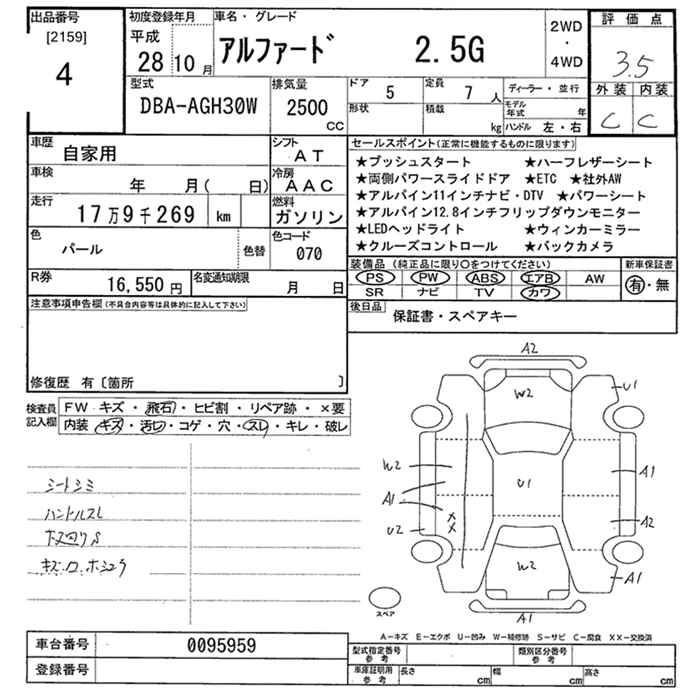 出品番号
[2159]
4
初度登録年月
平成
28 10 月
車名・グレード
アルファード 2.5G
2WD
・
4WD
評価点
3.5
外装 内装
C C
型式
DBA-AGH30W
排気量
2500
CC
ドア
5
定員
7 人
形状
積載
kg
ディーラー・並行
モデル年式 年
ハンドル 左・右
車歴
自家用
シフト
AT
車検
年 月( 日)
冷房
AAC
走行
17万9千269 km
燃料
ガソリン
色
パール
色替
色コード
070
R券
16,550 円
名変通知期限
月 日
セールスポイント(正常に機能するものに限ります)
★プッシュスタート ★ハーフレザーシート
★両側パワースライドドア ★ETC ★社外AW
★アルパイン11インチナビ・DTV ★パワーシート
★アルパイン12.8インチフリップダウンモニター
★LEDヘッドライト ★ウィンカーミラー
★クルーズコントロール ★バックカメラ
装備品 (純正品に限り○をつけてください)
新車保証書
PS PW ABS エアB AW
SR ナビ TV カワ
有・無
後日品
保証書・スペアキー
注意事項申告欄(不具合内容等は具体的に記入して下さい)
修復歴 有〔箇所 〕
検査員
記入欄
FW キズ・飛石・ヒビ割・リペア跡・×要
内装 キズ・汚レ・コゲ・穴・スレ・キレ・破レ
シートシミ
ハンドルスレ
A2
W2
U1
W2
A1
U2
U1
A1
A2
××
W2
A1
A1
スペア
A−キズ E−エクボ U−凹み W−補修跡 S−サビ C−腐食 XX−交換済
車台番号
0095959
登録番号
型式指定番号
参考
類別区分番号
参考
車庫証明用
参考
長さ cm
幅 cm
高さ cm